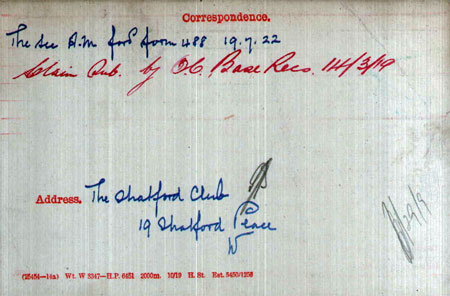 Correspondence.
The Sec A.M. ford form 488 19.7.22
Claim Sub. by O.C. Base Recs. 14/3/19
Address. The Shalford Club
19 Shalford Place
W
(25454—14a) Wt. W 3247—H.P. 6451 2000m. 10/19 H. St. Est. 5450/1258